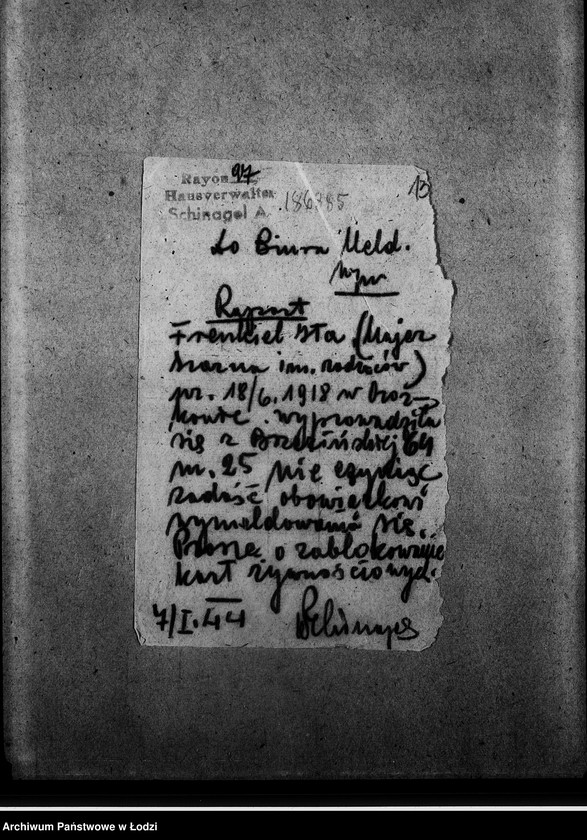 Rayon 97
Hausverwalter
Schinagel A.
186785
13
Do Biura Meld.
Raport
Frenkiel Ita (Majer
im. rodziców)
ur. 18/6. 1918 w
wyprowadziła
się z Brzezińskiej 64
m. 25 nie czyniąc
zadość obowiązkowi
wymeldowania się.
Proszę o zablokowanie
kart żywnościowych.
7/I.44
Schinagel
Archiwum Państwowe w Łodzi